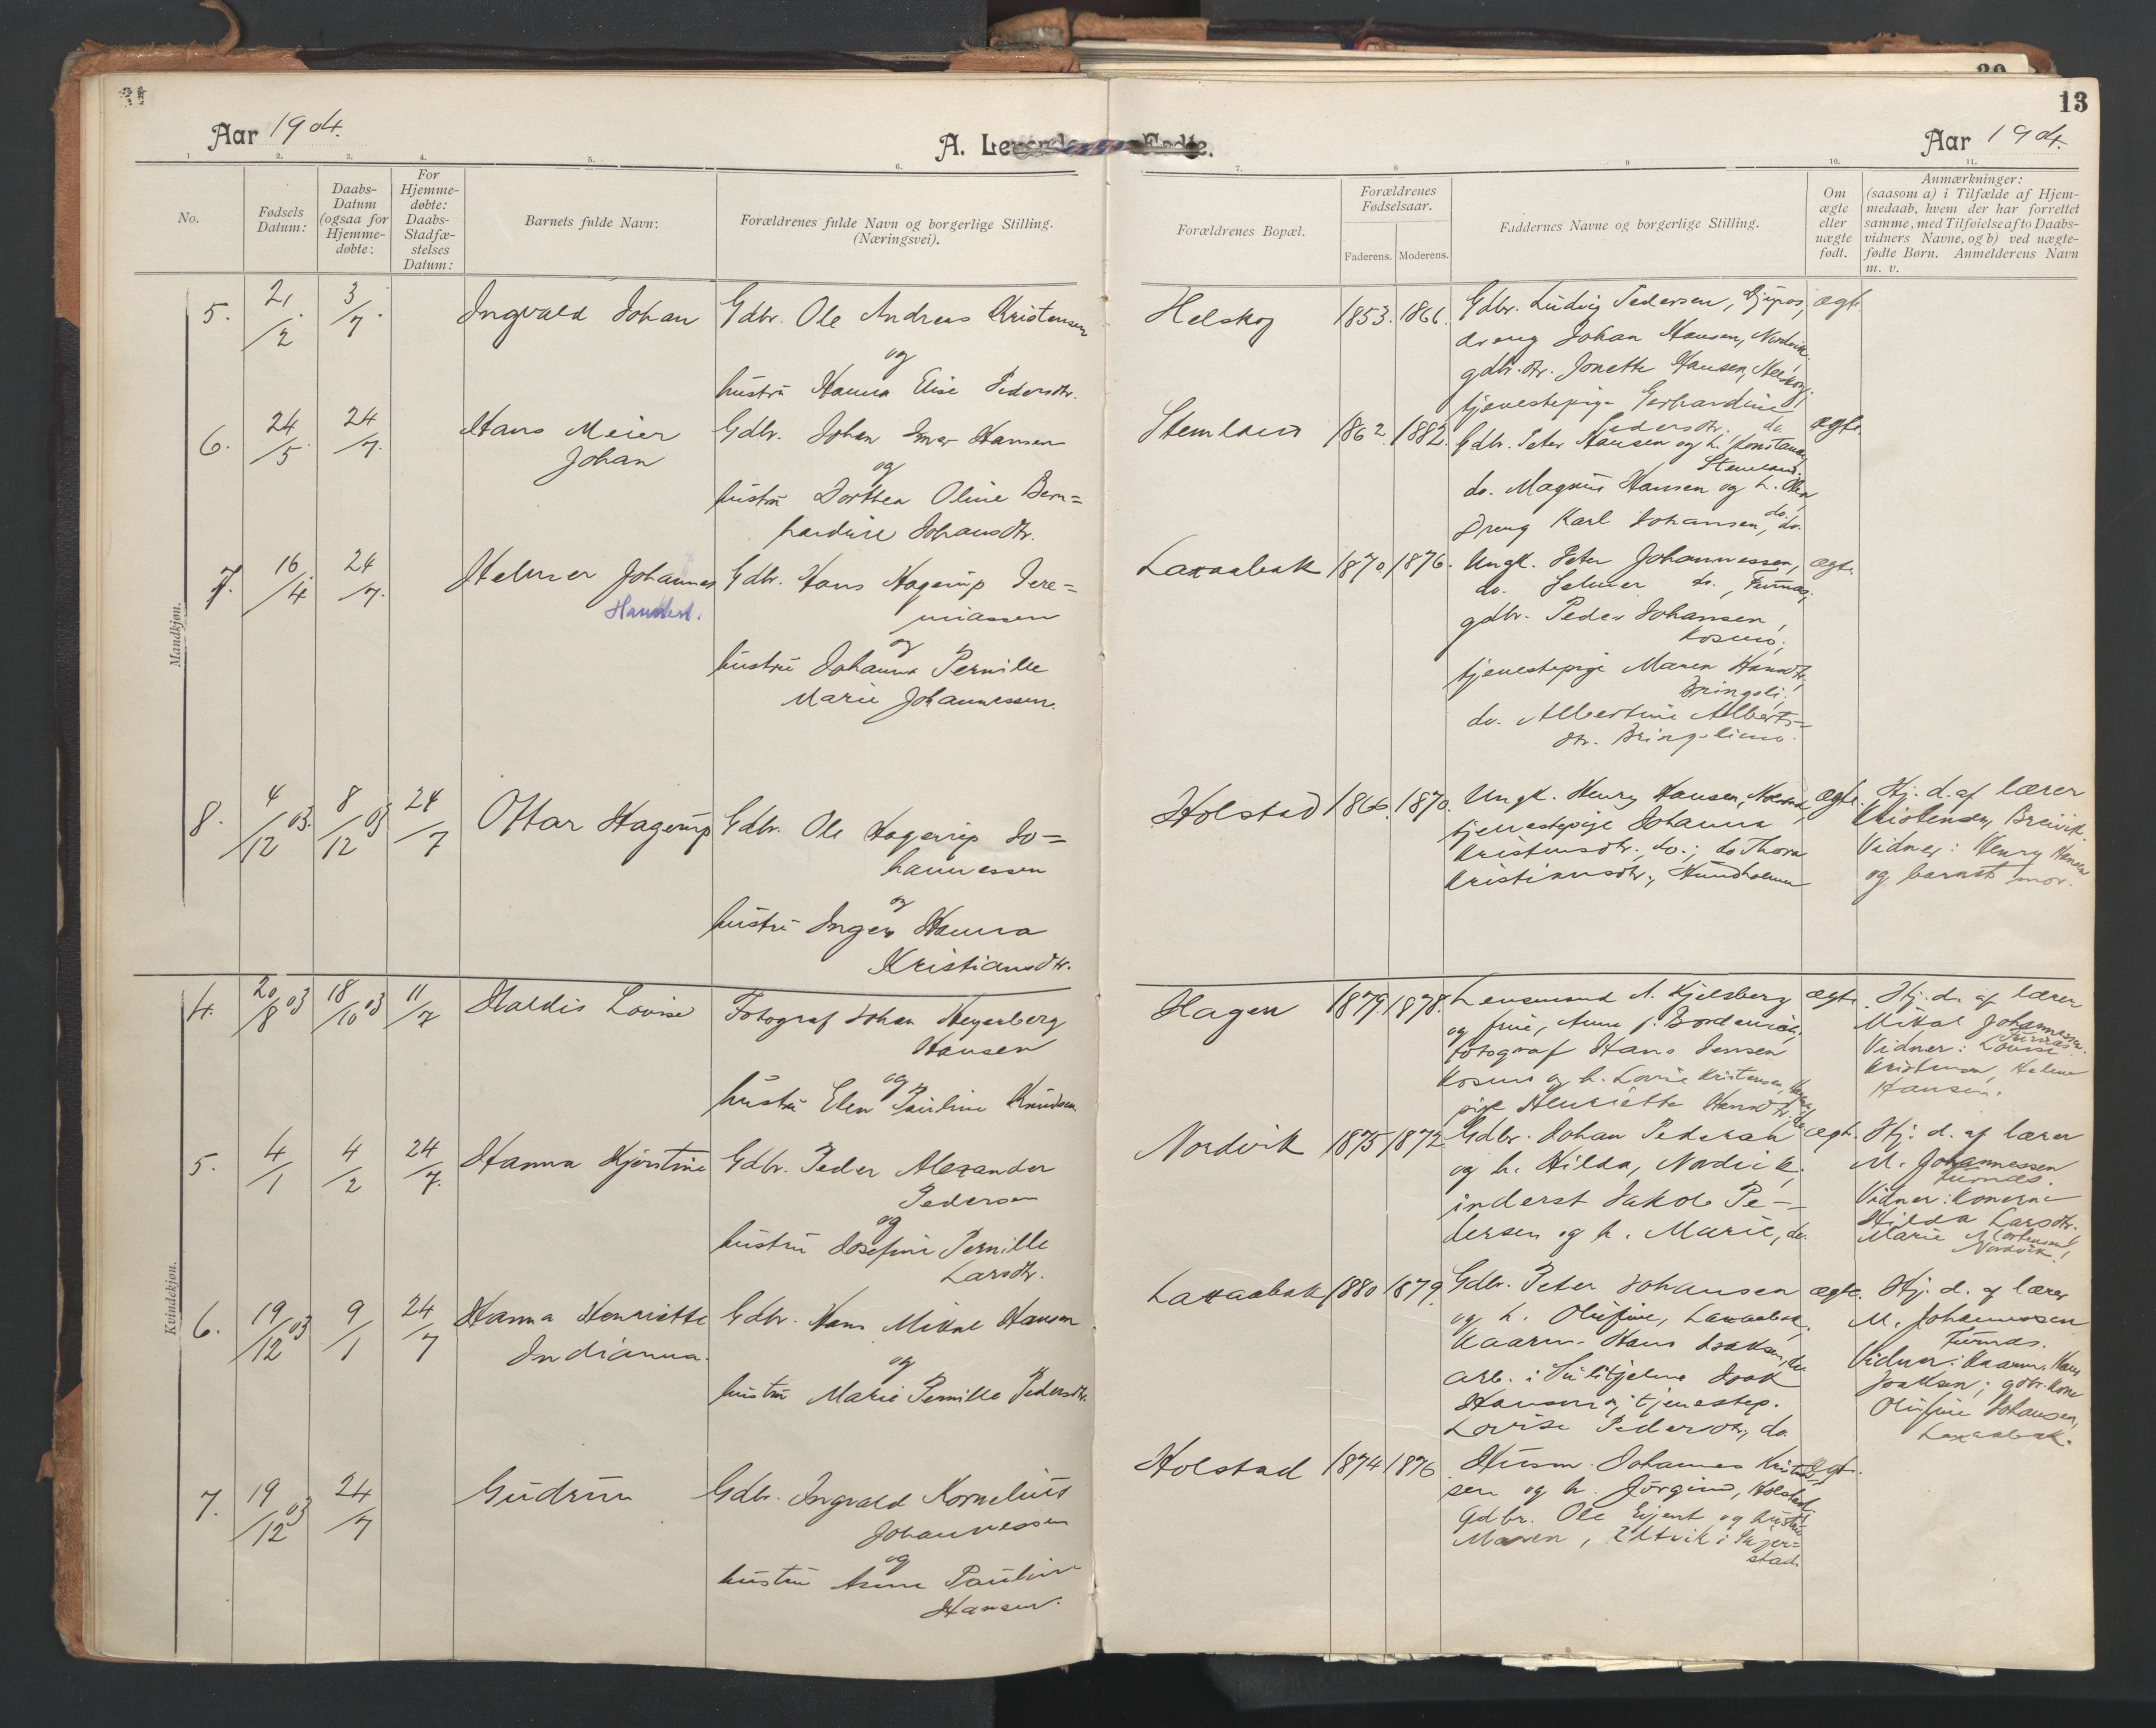 13
Aar 1904.
A. Levende Fødte.
Aar 1904.
1.
2.
3.
4.
5.
6.
7.
8
9
10.
11.
No.
Fødsels Datum:
Daabs-Datum (ogsaa for Hjemme-døbte:
For Hjemme-døbte: Daabs-Stadfæ-stelses Datum:
Barnets fulde Navn:
Forældrenes fulde Navn og borgerlige Stilling.
(Næringsvei).
Forældrenes Bopæl.
Forældrenes Fødselsaar.
Faderens.
Moderens.
Faddernes Navne og borgerlige Stilling.
Om ægte eller uægte født.
Anmærkninger:
(saasom a) i Tilfælde af Hjem-
medaab, hvem der har forrettet
samme, med Tilføielse af to Daabs-
vidners Navne, og b) ved uægte-
fødte Børn. Anmelderens Navn
m. v.
Mandkjøn.
5. 21/2 3/7.
Ingvald Johan
Gdbr. Ole Andreas Kristensen
og
hustru Hanna Elise Pedersdtr.
Helskog 1853. 1866.
Gdbr. Ludvig Pedersen,
dreng Johan Hansen, Nordvik.
gdbr.dtr. Jonette Hansen, Helskog,
tjenestepige Gerhardine
Pedersdtr. do
ægte.
6. 24/5. 24/7.
Hans Meier
Johan
Gdbr. Johan Hansen
og
hustru Dorthea Oline Bern=
hardine Johansdtr.
Stemland 1862. 1882.
Gdbr. Peter Hansen og h. Konstanse
Stemland.
do. Magnus Hansen og h.
do.
Dreng Karl Johansen, do.
ægte.
7. 16/4. 24/7.
Helmer Johannes
Gdbr. Hans Hagerup Jere=
miassen
og
hustru Johanna Pernille
Marie Johannessen.
Laxaabak 1870. 1876.
Ungk. Peter Johannessen,
do. Selmer do., Furnæs;
gdbr. Peder Johansen,
Kosmo;
tjenestepige Maren Hansdtr.
Bringsli;
do. Albertine Alberts-
dtr. Bringslimo.
ægte.
8. 4/12 03. 8/12 03 24/7
Ottar Hagerup
Gdbr. Ole Hagerup Jo=
hannessen
og
hustru Inger Hanna
Kristiansdtr.
Holstad 1866. 1870.
Ungk. Henry Hansen, Holstad,
tjenestepige Johanna
Kristensdtr., do.; do Thora
Kristiansdtr., Hundholmen
ægte.
Hj. d. af lærer
Kristensen, Breivik.
Vidner: Henry Hansen
og barnets mor.
Kvindekjøn.
4. 20/8 03 18/10 03 11/7
Haldis Lovise
Fotograf Johan Heyerberg
Hansen
og
hustru Elen Pauline Knudsen
Hagen 1879. 1878.
Lensmand A. Kjelsberg
og frue, Anna f. Bordevick,
fotograf Hans Jensen
Kosmo og h. Lovise Kristensen,
pige Henriette Hansdtr.
ægte.
Hj. d. af lærer
Mikal Johannessen
Furnæs.
Vidner: Lovise
Kristensen, Helene
Hansen.
5. 4/1 4/2 24/7.
Hanna Kjerstine
Gdbr. Peder Alexander
Pedersen
og
hustru Josefine Pernille
Larsdtr.
Nordvik 1875 1872
Gdbr. Johan Pedersen
og h. Hilda, Nordvik;
inderst Jakob Pe-
dersen og h. Marie, do.
ægte.
Hj. d. af lærer
M. Johannessen
Furnæs.
Vidner: Konerne
Hilda Larsdtr.
Marie Mortensen,
Nordvik.
6. 19/12 03 9/1 24/7
Hanna Henriette
Indianna.
Gdbr. Hans Mikal Hansen
og
hustru Marie Pernille Pedersdtr.
Laxaabak 1880 1879.
Gdbr. Peter Johansen
og h. Olufine, Laxaabak,
Kaarm. Hans Isaksen, do
arb. i Sulitjelma Isak
Hansen; tjenestep.
Lovise Pedersdtr., do
ægte.
Hj. d. af lærer
M. Johannessen
Furnæs.
Vidner: Kaarm. Hans
Isaksen; gdbr.kone
Olufine Johansen,
Laxaabak.
7. 19/12 03 24/7
Gudrun
Gdbr. Ingvald Kornelius
Johannessen
og
hustru Anna Pauline
Hansen.
Holstad 1874 1876
Husm. Johannes Kristen-
sen og h. Jørgine, Holstad,
Gdbr. Ole Ejent og hustru
Maren, Utvik i Skjer=
stad.
ægte.